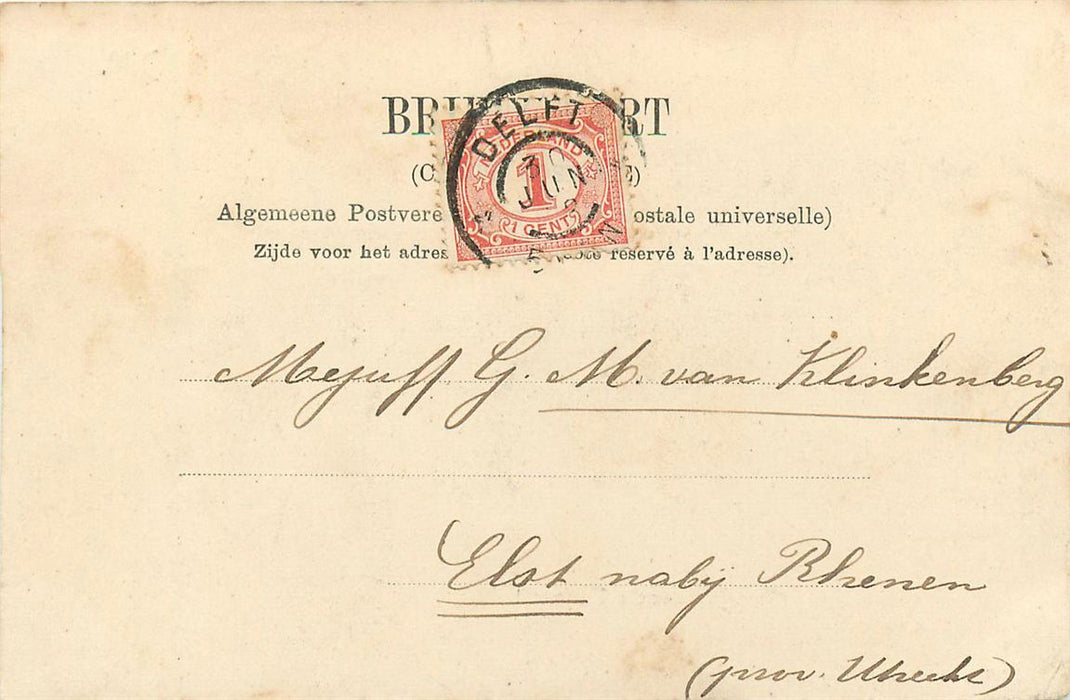 BRI RT
(C )
Algemeene Postvere ostale universelle)
Zijde voor het adres reservé à l'adresse).
DELFT
NEDERLAND
30
JUN
1
1 CENT
Mejuff. G. M. van Klinkenberg
Elst nabij Rhenen
(prov. Utrecht)